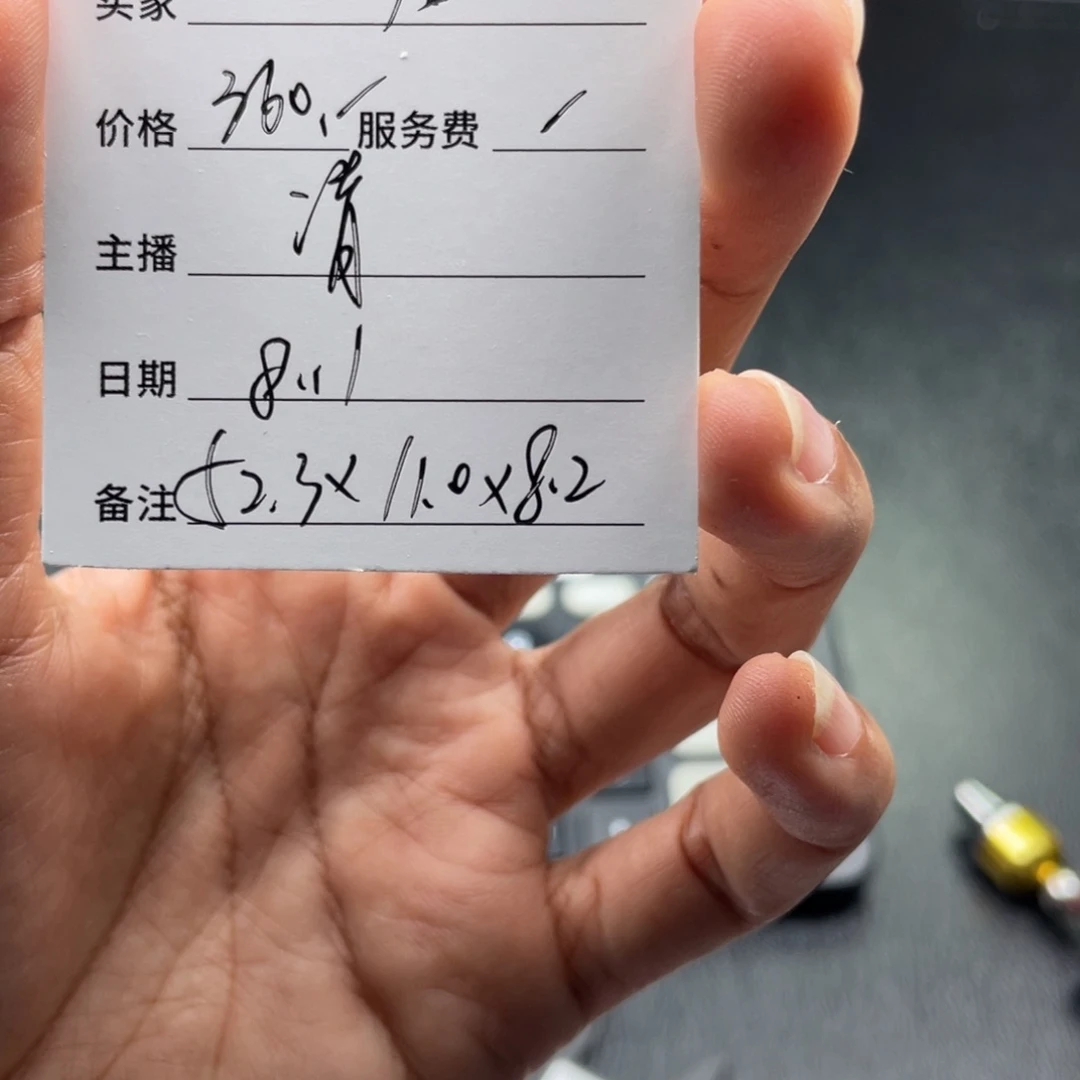 卖家
价格 360.- 服务费 /
主播 清
日期 8.11
备注 52.3x11.0x8.2